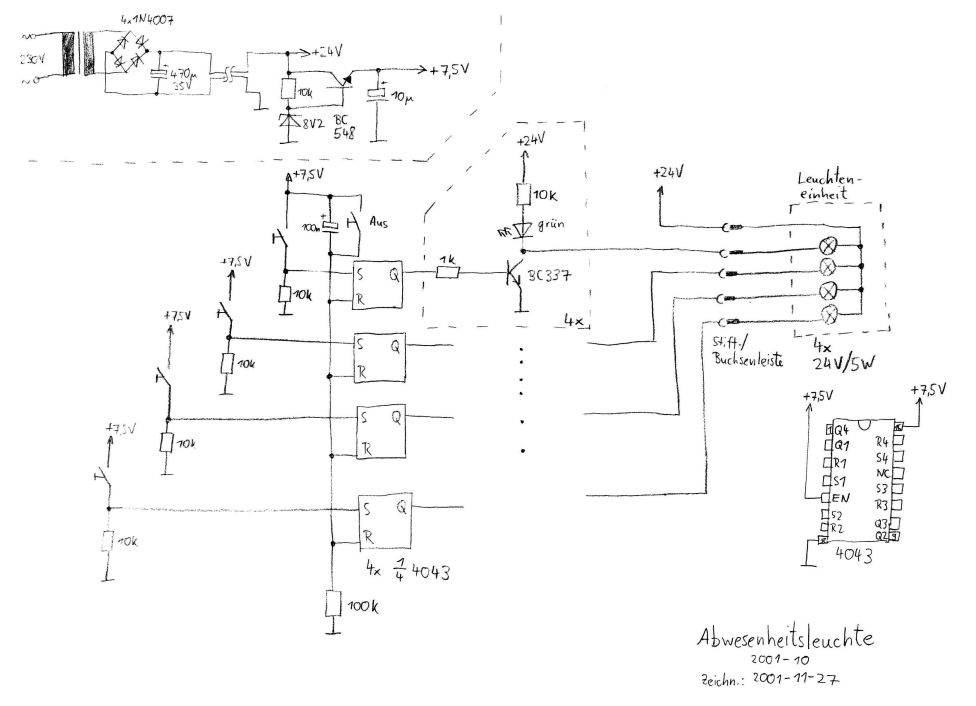 4x1N4007
230V
470µ
35V
+24V
+7,5V
10k
10µ
8V2
BC
548
+7,5V
100n
Aus
+7,5V
10k
S Q
R
1k
+24V
10k
grün
BC337
4x
+24V
Leuchten-
einheit
Stift-/
Buchsenleiste
4x
24V/5W
+7,5V
10k
S Q
R
+7,5V
10k
S Q
R
10k
S Q
R
4x 1/4 4043
100k
+7,5V
+7,5V
1 Q4
Q1
R1
S1
EN
S2
R2
8
16
R4
S4
NC
S3
R3
Q3
Q2 9
4043
Abwesenheitsleuchte
2001-10
Zeichn.: 2001-11-27